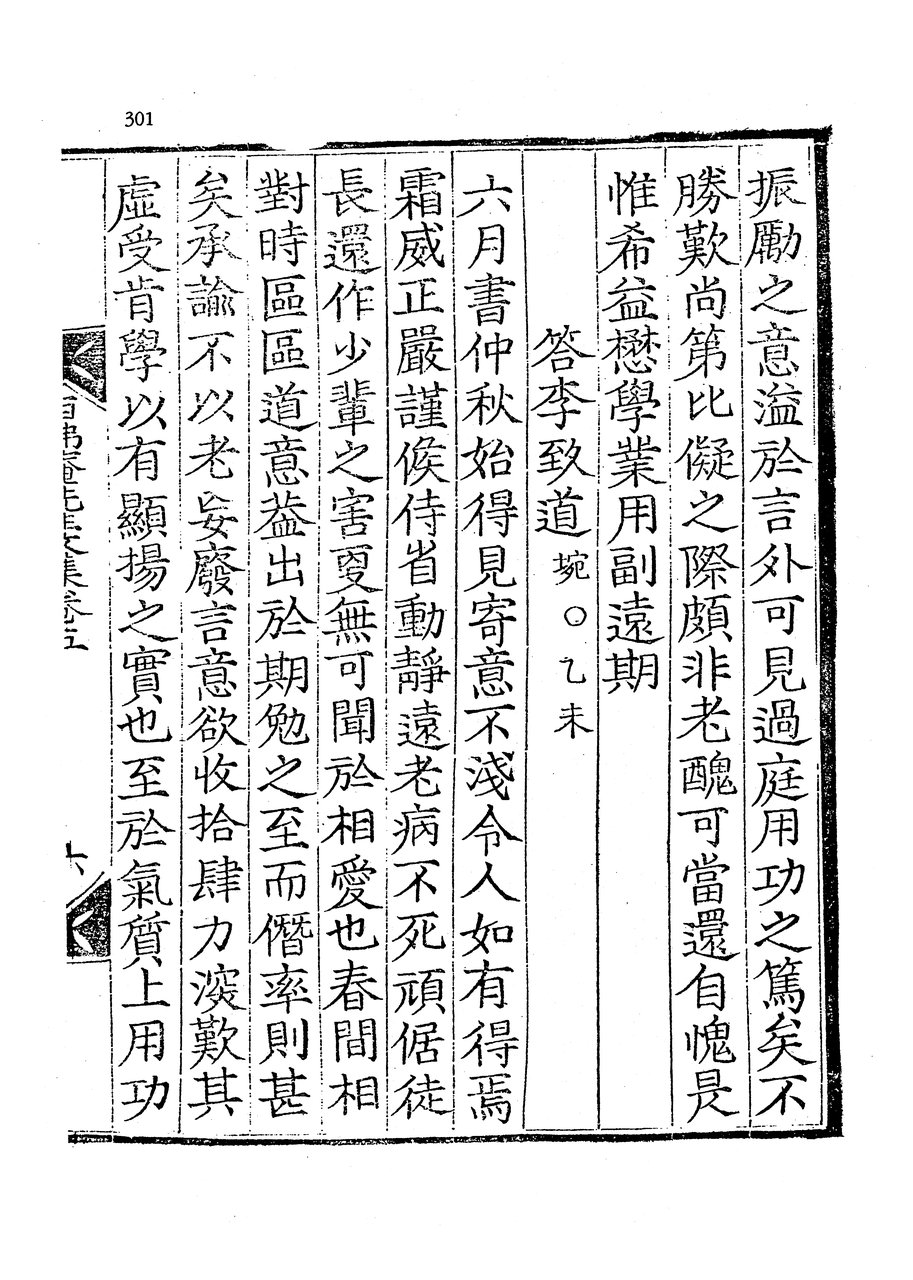 301
振勵之意溢於言外可見過庭用功之篤矣不
勝歎尚第比儗之際頗非老醜可當還自愧是
惟希益懋學業用副遠期
答李致道 埦○乙未
六月書仲秋始得見寄意不淺令人如有得焉
霜威正嚴謹候侍省動靜遠老病不死頑倨徒
長還作少輩之害更無可聞於相愛也春間相
對時區區道意葢出於期勉之至而僭率則甚
矣承諭不以老妄廢言意欲收拾肆力深歎其
虛受肯學以有顯揚之實也至於氣質上用功
弗菴先生文集卷五
六